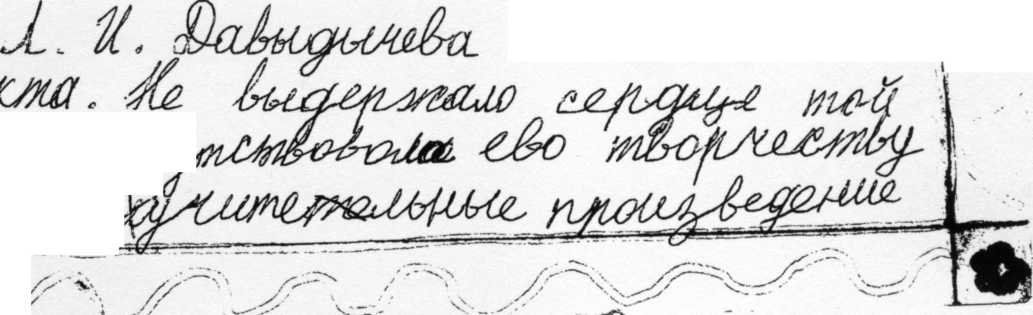 Л. И. Давыдычева
кта. Не выдержало сердце той
тствовала ево творчеству
учитетельные произведение